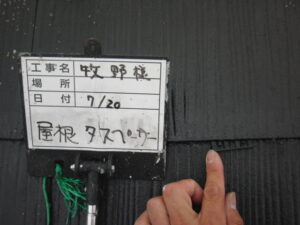 工事名 牧野様
場所
日付 7/20
屋根 タスペーサー